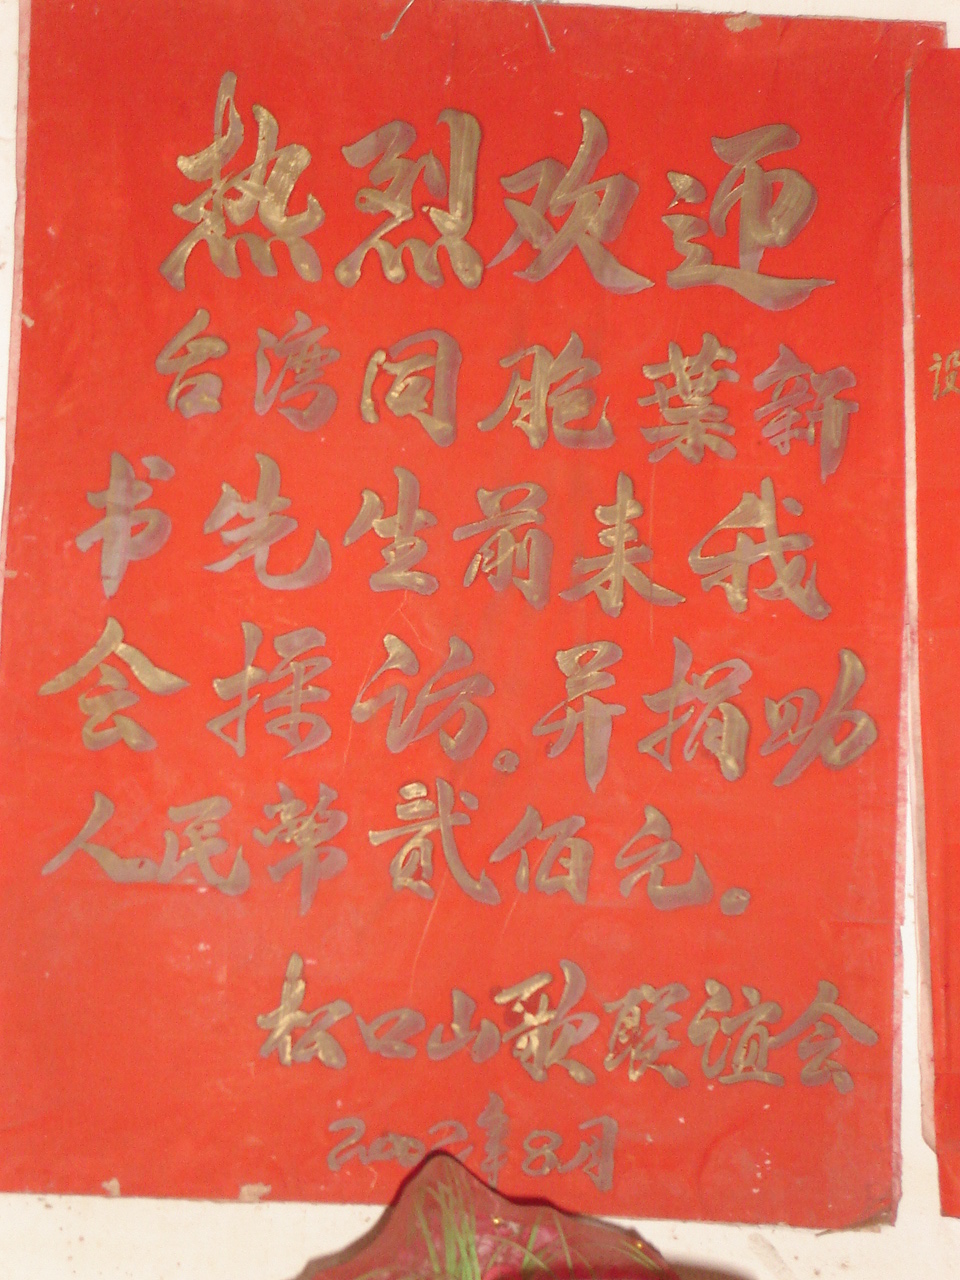 热烈欢迎
台湾同胞葉新
书先生前来我
会採访。并捐助
人民幣贰佰元。
松口山歌联谊会
2002年8月
设